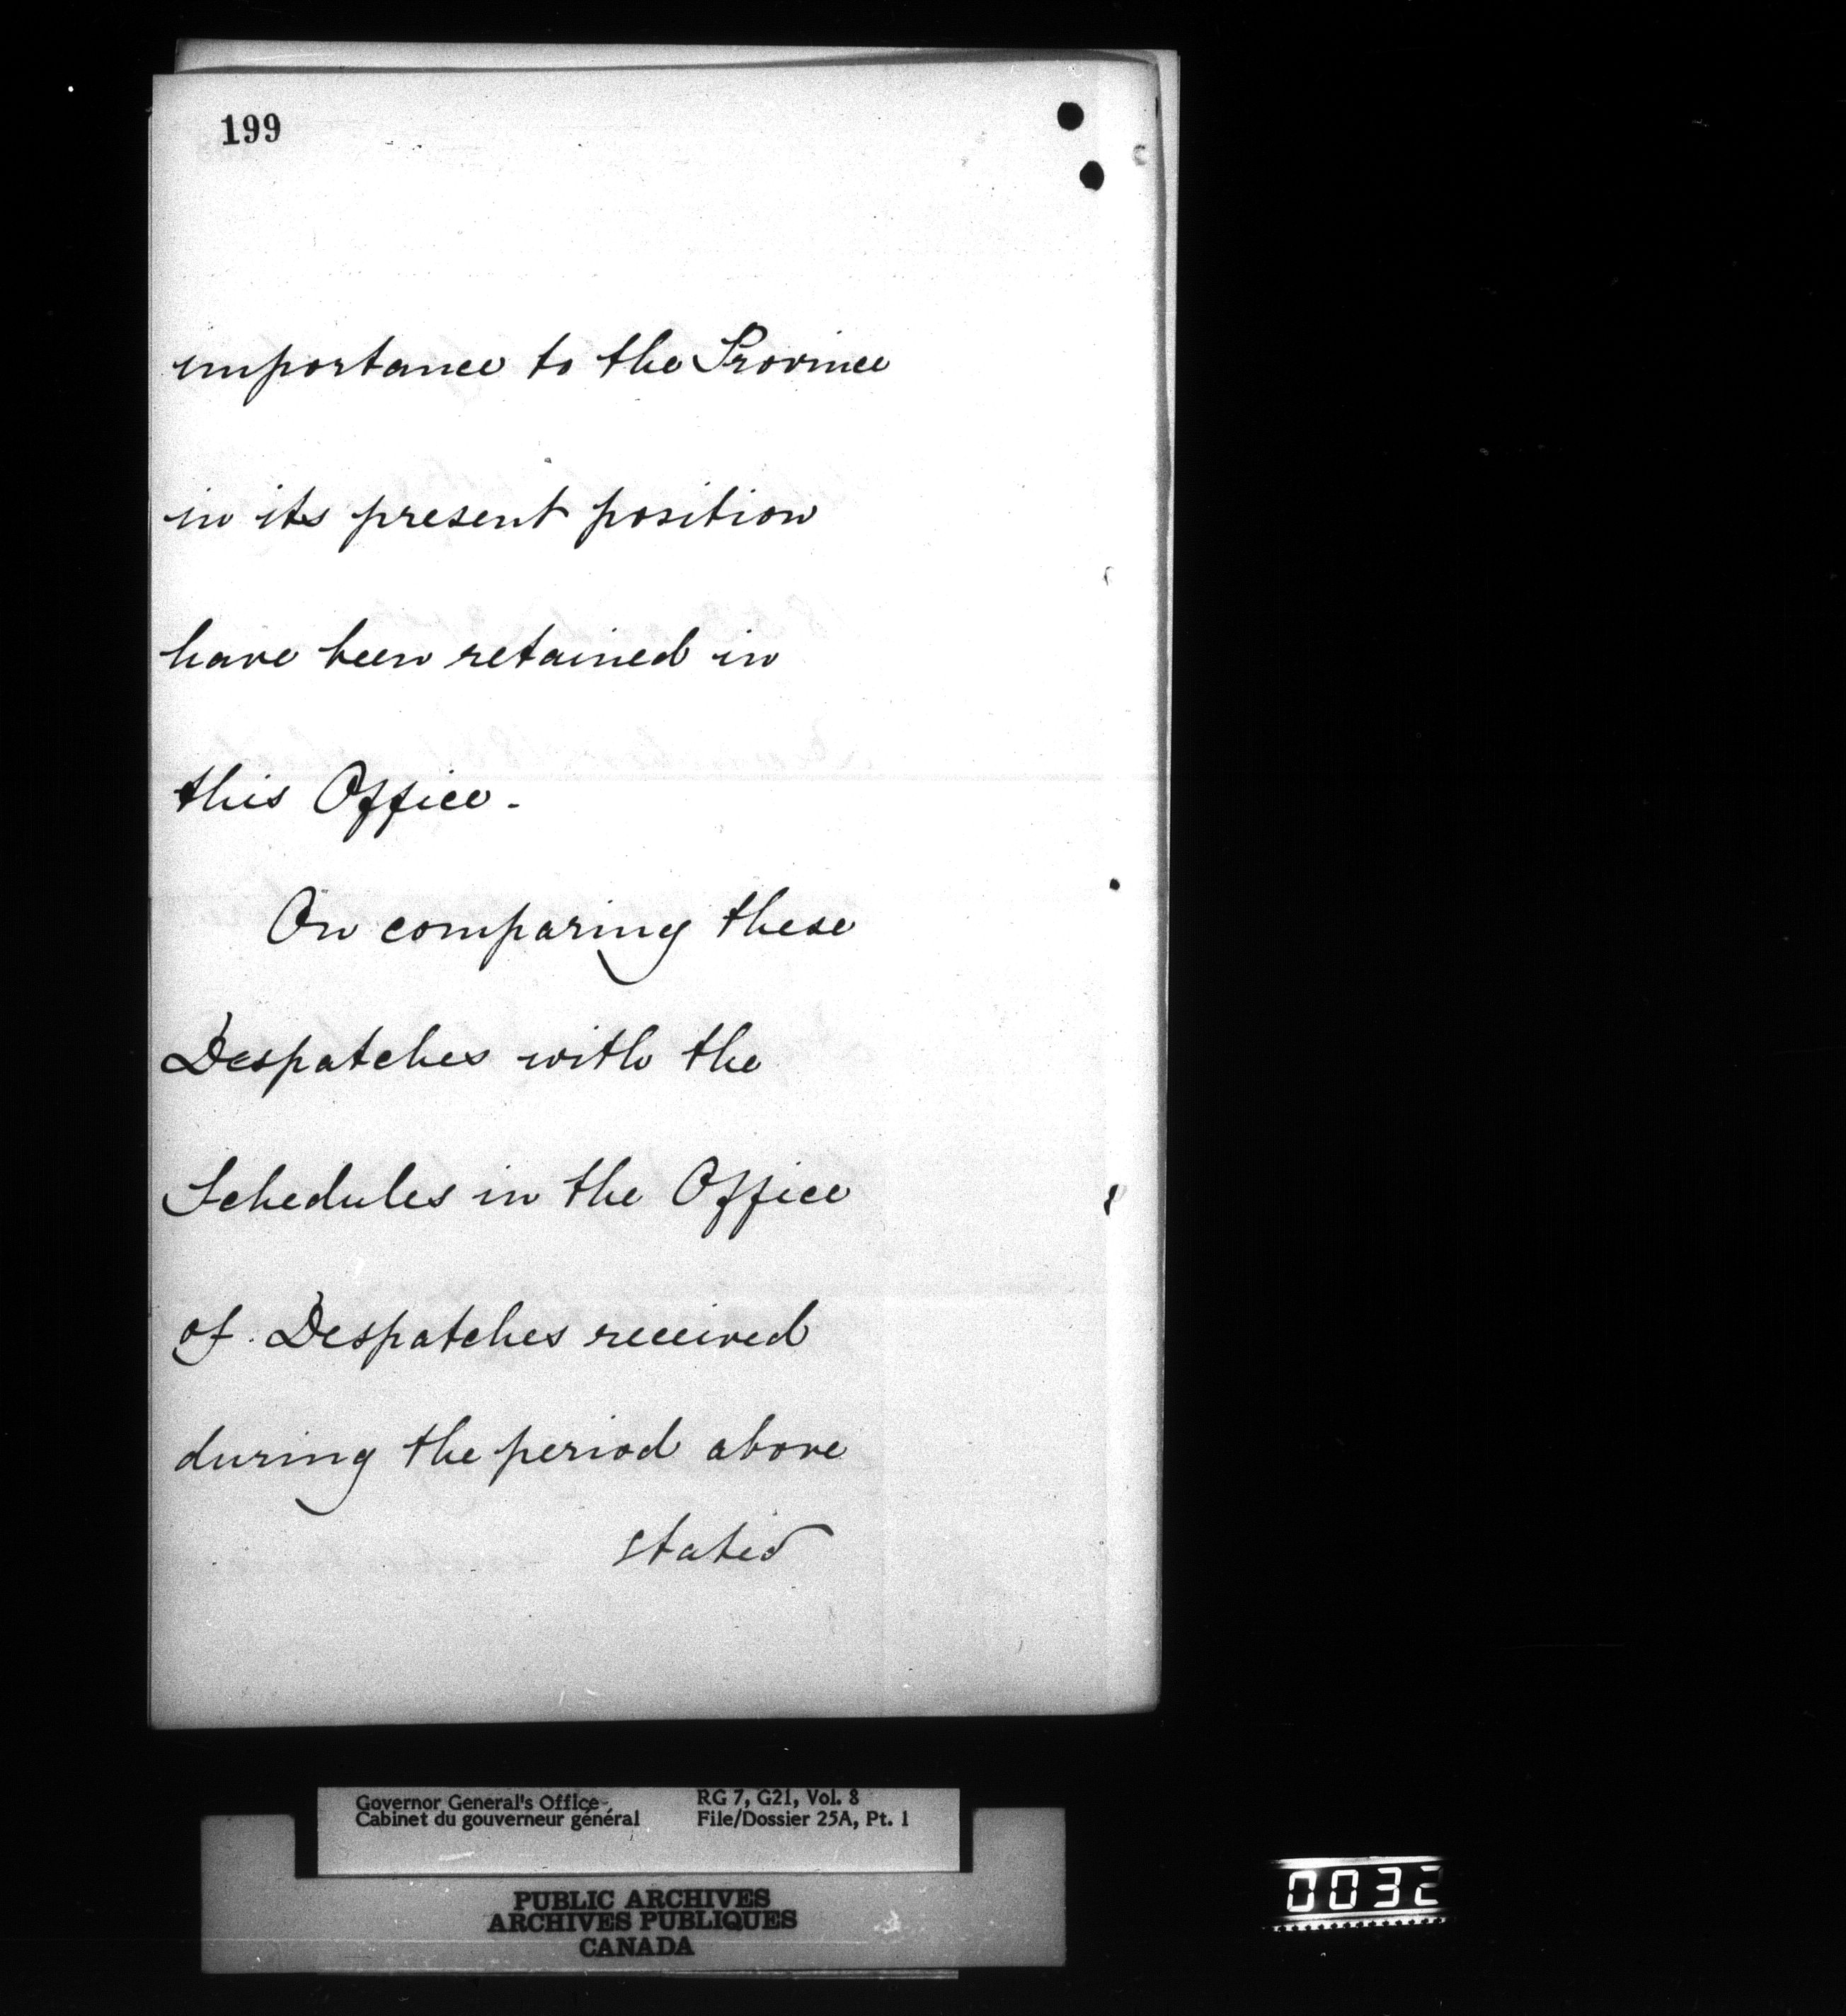 199
importance to the Province
in its present position
have been retained in
this Office.
On comparing these
Despatches with the
Schedules in the Office
of Despatches received
during the period above
stated
Governor General's Office
Cabinet du gouverneur général
RG 7, G21, Vol. 8
File/Dossier 25A, Pt. 1
PUBLIC ARCHIVES
ARCHIVES PUBLIQUES
CANADA
0032